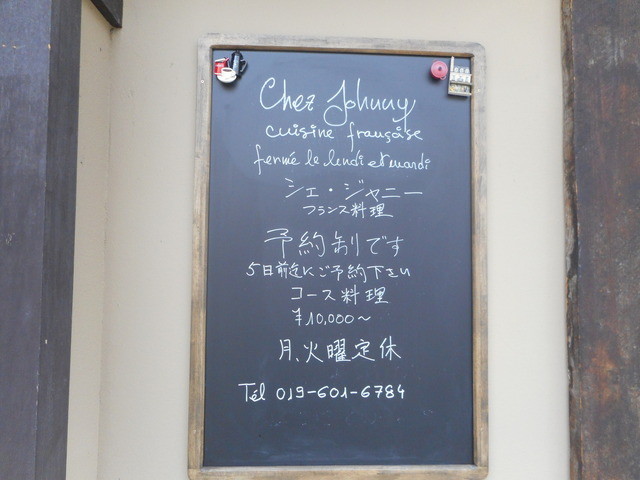 Chez Johnny
cuisine française
fermé le lundi et mardi
シェ・ジャニー
フランス料理
予約制です
5日前迄にご予約下さい
コース料理
¥10,000〜
月、火曜定休
Tél 019-601-6784